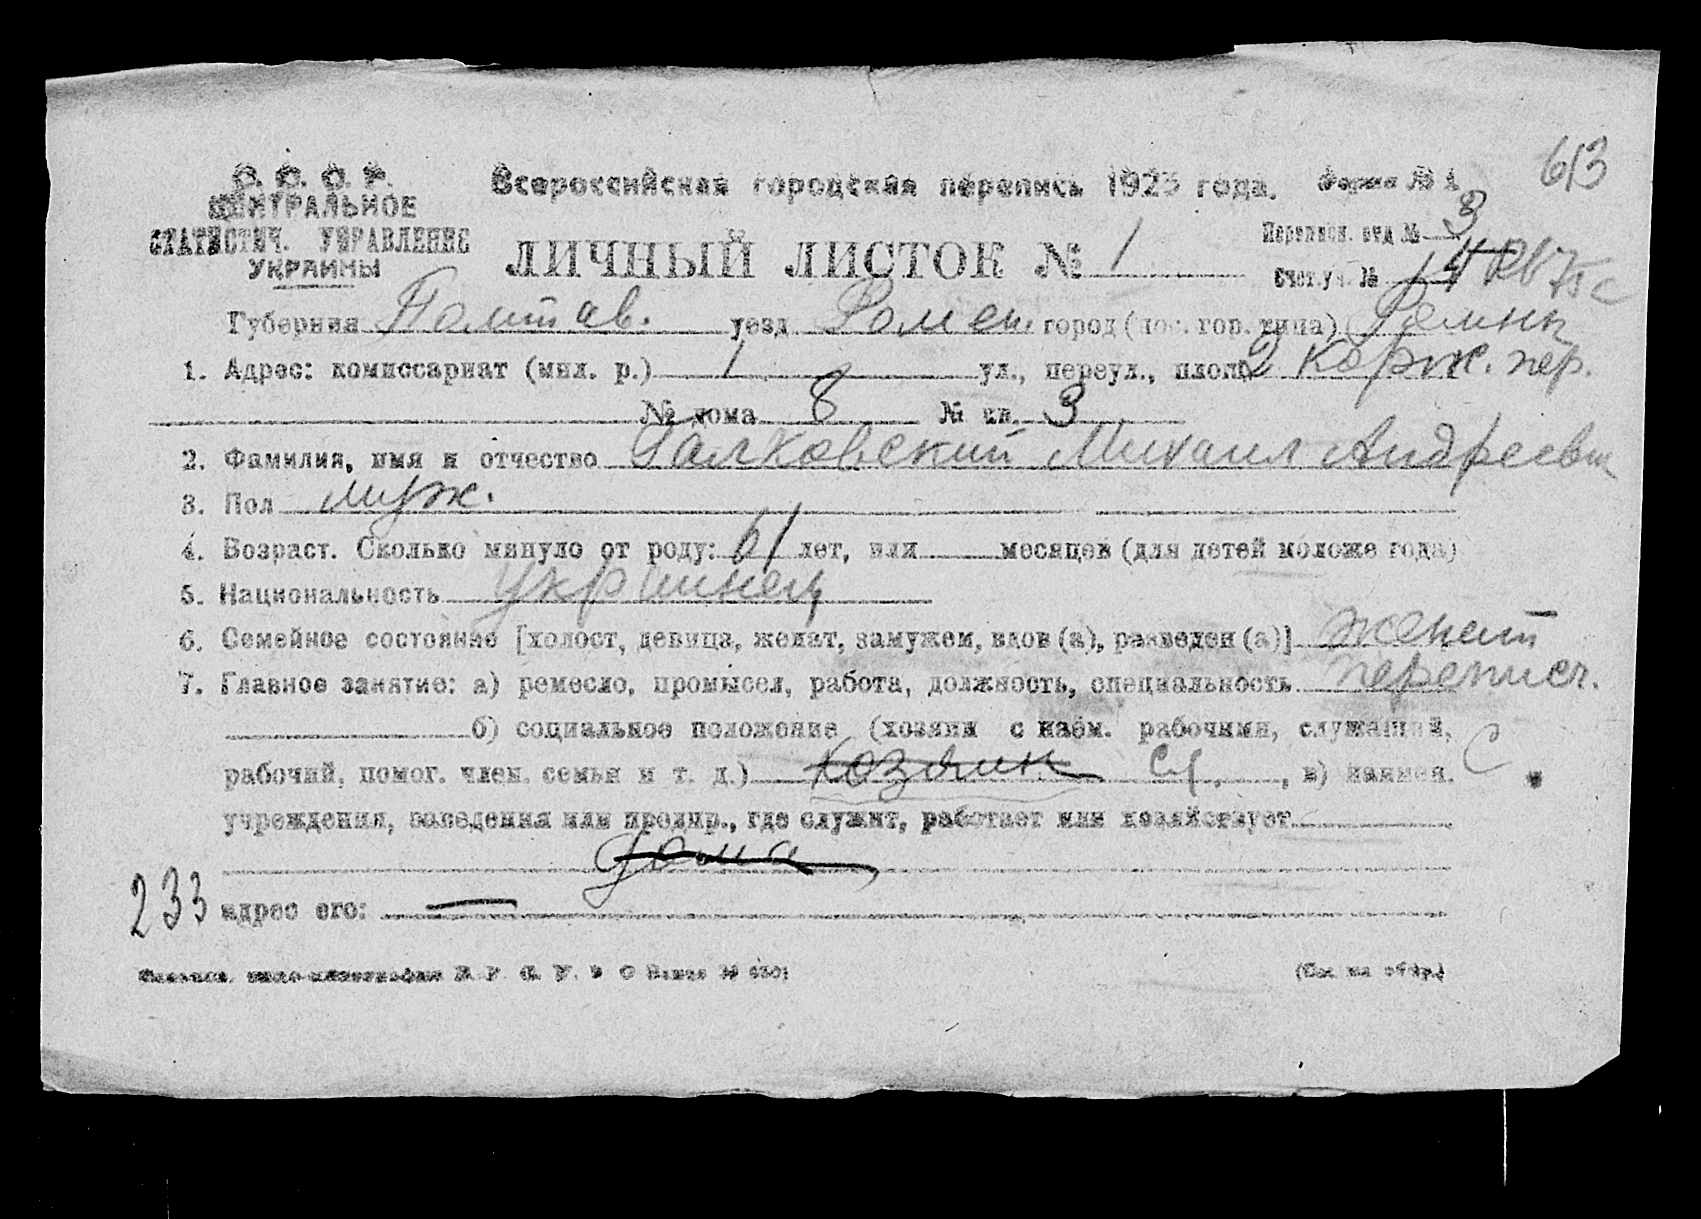 613
С. С. С. Р.
ЦЕНТРАЛЬНОЕ
СТАТИСТИЧ. УПРАВЛЕНИЕ
УКРАИНЫ
Всероссийская городская перепись 1923 года.
Форма № 1
Переписн. отд № 3
ЛИЧНЫЙ ЛИСТОК № 1
Счет. уч. № 14
Губерния Полтав. уезд Ромен. город (пос. гор. типа) Ромны
1. Адрес: комиссариат (мил. р.) 1 ул., переул., площ. 2 Корж. пер.
№ дома 8 № кв. 3
2. Фамилия, имя и отчество Галковский Михаил Андреевич
3. Пол муж.
4. Возраст. Сколько минуло от роду: 61 лет, или месяцев (для детей моложе года)
5. Национальность украинец
6. Семейное состояние [холост, девица, женат, замужем, вдов (а), разведен (а)] женат
7. Главное занятие: а) ремесло, промысел, работа, должность, специальность переписч.
б) социальное положение (хозяин с наём. рабочими, служащий,
рабочий, помог. член. семьи и т. д.) хозяин сл., в) наимен. С
учреждения, заведения или предпр., где служит, работает или хозяйствует
дома
233 адрес его: —
(См. на обор.)